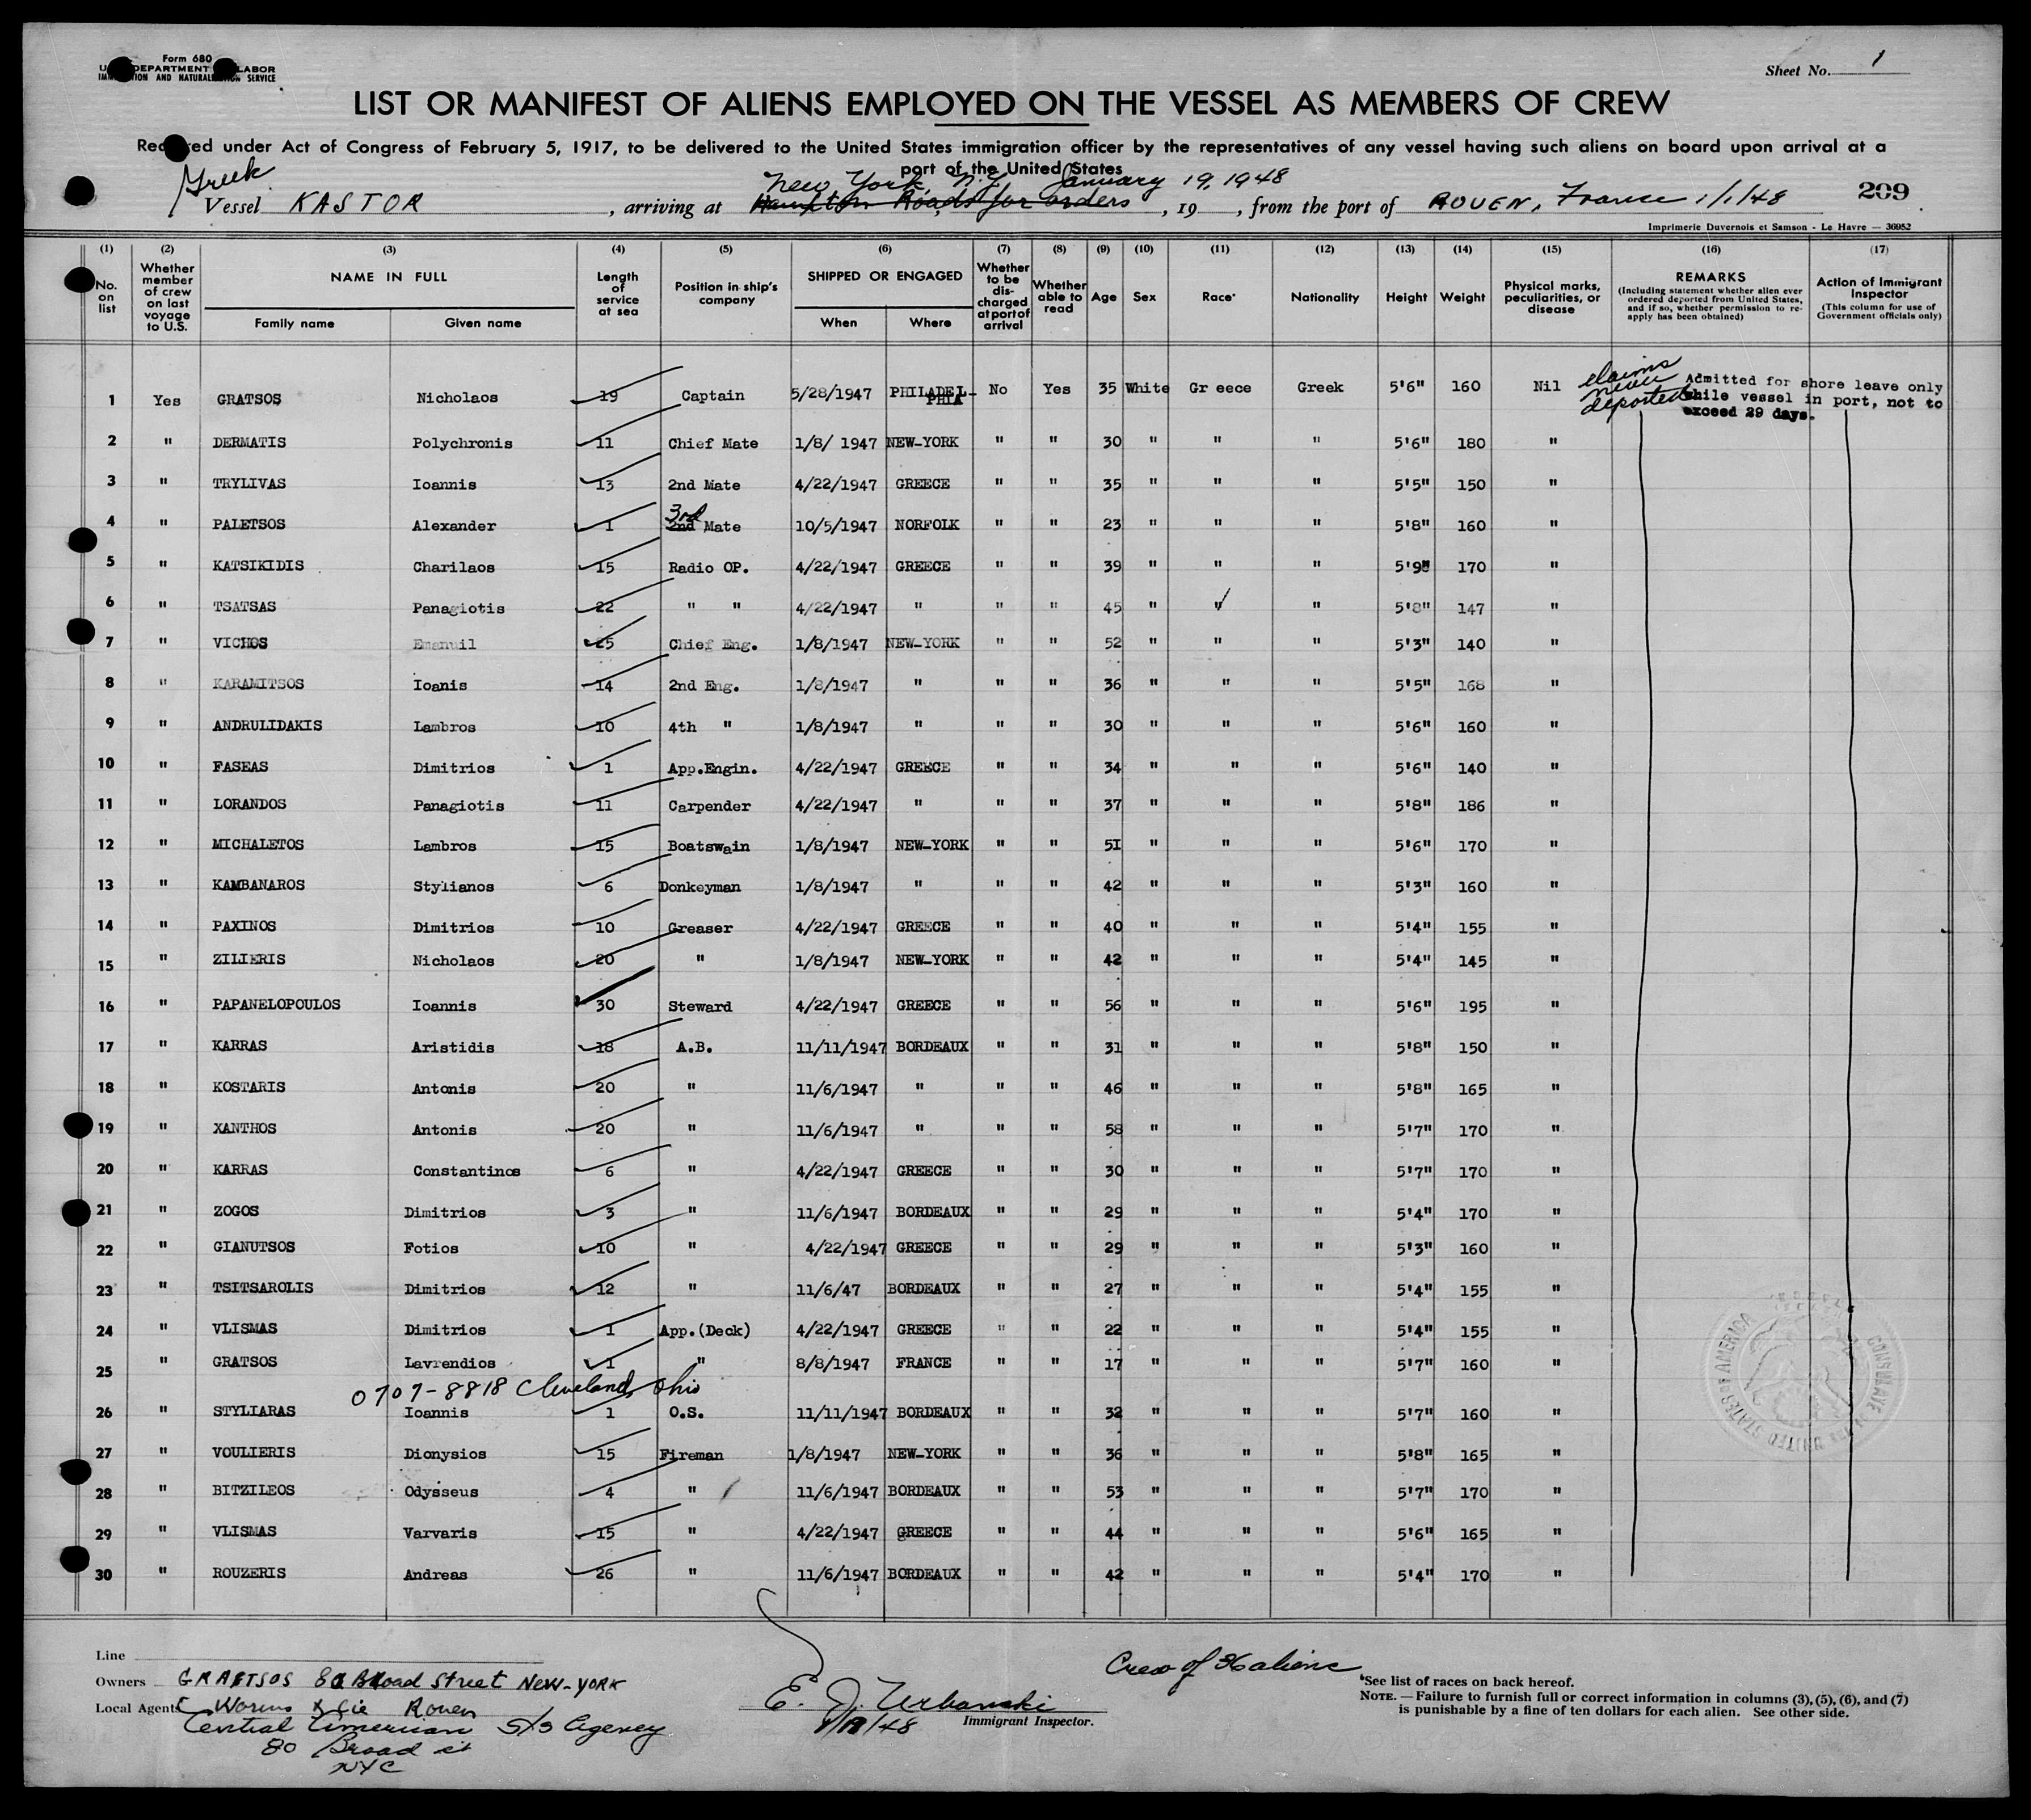 Form 680
DEPARTMENT LABOR
AND NATURALIZATION SERVICE
Sheet No. 1
LIST OR MANIFEST OF ALIENS EMPLOYED ON THE VESSEL AS MEMBERS OF CREW
Required under Act of Congress of February 5, 1917, to be delivered to the United States immigration officer by the representatives of any vessel having such aliens on board upon arrival at a
port of the United States
Greek New York, N.Y. January 19, 1948
Vessel KASTOR, arriving at Hampton Roads for orders, 19, from the port of ROUEN, France 1/1/48 209
Imprimerie Duvernois et Samson - Le Havre — 36952
(1) (2) (3) (4) (5) (6) (7) (8) (9) (10) (11) (12) (13) (14) (15) (16) (17)
No. on list Whether member of crew on last voyage to U.S. NAME IN FULL Family name Given name Length of service at sea Position in ship's company SHIPPED OR ENGAGED When Where Whether to be discharged at port of arrival Whether able to read Age Sex Race* Nationality Height Weight Physical marks, peculiarities, or disease REMARKS (Including statement whether alien ever ordered deported from United States, and if so, whether permission to re-apply has been obtained) Action of Immigrant Inspector (This column for use of Government officials only)
1 Yes GRATSOS Nicholaos 19 Captain 5/28/1947 PHILADEL-PHIA No Yes 35 White Gr eece Greek 5'6" 160 Nil claims never deported Admitted for shore leave only while vessel in port, not to exceed 29 days.
2 " DERMATIS Polychronis 11 Chief Mate 1/8/ 1947 NEW-YORK " " 30 " " " 5'6" 180 "
3 " TRYLIVAS Ioannis 13 2nd Mate 4/22/1947 GREECE " " 35 " " " 5'5" 150 "
4 " PALETSOS Alexander 1 2nd 3rd Mate 10/5/1947 NORFOLK " " 23 " " " 5'8" 160 "
5 " KATSIKIDIS Charilaos 15 Radio OP. 4/22/1947 GREECE " " 39 " " " 5'9" 170 "
6 " TSATSAS Panagiotis 22 " " 4/22/1947 " " " 45 " " " 5'8" 147 "
7 " VICHOS Emanuil 25 Chief Eng. 1/8/1947 NEW-YORK " " 52 " " " 5'3" 140 "
8 " KARAMITSOS Ioanis 14 2nd Eng. 1/8/1947 " " " 36 " " " 5'5" 168 "
9 " ANDRULIDAKIS Lambros 10 4th " 1/8/1947 " " " 30 " " " 5'6" 160 "
10 " FASEAS Dimitrios 1 App.Engin. 4/22/1947 GREECE " " 34 " " " 5'6" 140 "
11 " LORANDOS Panagiotis 11 Carpender 4/22/1947 " " " 37 " " " 5'8" 186 "
12 " MICHALETOS Lambros 15 Boatswain 1/8/1947 NEW-YORK " " 5I " " " 5'6" 170 "
13 " KAMBANAROS Stylianos 6 Donkeyman 1/8/1947 " " " 42 " " " 5'3" 160 "
14 " PAXINOS Dimitrios 10 Greaser 4/22/1947 GREECE " " 40 " " " 5'4" 155 "
15 " ZILIERIS Nicholaos 20 " 1/8/1947 NEW-YORK " " 42 " " " 5'4" 145 "
16 " PAPANELOPOULOS Ioannis 30 Steward 4/22/1947 GREECE " " 56 " " " 5'6" 195 "
17 " KARRAS Aristidis 18 A.B. 11/11/1947 BORDEAUX " " 31 " " " 5'8" 150 "
18 " KOSTARIS Antonis 20 " 11/6/1947 " " " 46 " " " 5'8" 165 "
19 " XANTHOS Antonis 20 " 11/6/1947 " " " 58 " " " 5'7" 170 "
20 " KARRAS Constantinos 6 " 4/22/1947 GREECE " " 30 " " " 5'7" 170 "
21 " ZOGOS Dimitrios 3 " 11/6/1947 BORDEAUX " " 29 " " " 5'4" 170 "
22 " GIANUTSOS Fotios 10 " 4/22/1947 GREECE " " 29 " " " 5'3" 160 "
23 " TSITSAROLIS Dimitrios 12 " 11/6/47 BORDEAUX " " 27 " " " 5'4" 155 "
24 " VLISMAS Dimitrios 1 App.(Deck) 4/22/1947 GREECE " " 22 " " " 5'4" 155 "
25 " GRATSOS Lavrendios 1 " 8/8/1947 FRANCE " " 17 " " " 5'7" 160 "
0707-8818 Cleveland, Ohio
26 " STYLIARAS Ioannis 1 O.S. 11/11/1947 BORDEAUX " " 32 " " " 5'7" 160 "
27 " VOULIERIS Dionysios 15 Fireman 1/8/1947 NEW-YORK " " 36 " " " 5'8" 165 "
28 " BITZILEOS Odysseus 4 " 11/6/1947 BORDEAUX " " 53 " " " 5'7" 170 "
29 " VLISMAS Varvaris 15 " 4/22/1947 GREECE " " 44 " " " 5'6" 165 "
30 " ROUZERIS Andreas 26 " 11/6/1947 BORDEAUX " " 42 " " " 5'4" 170 "
CONSULATE UNITED STATES OF AMERICA
Line
Owners GRATSOS 80 Broad Street NEW-YORK
Local Agents Worms & Cie Rouen
Central American S/S Agency
80 Broad st
NYC
E. J. Urbanski
1/19/48 Immigrant Inspector.
Crew of
*See list of races on back hereof.
NOTE. — Failure to furnish full or correct information in columns (3), (5), (6), and (7)
is punishable by a fine of ten dollars for each alien. See other side.